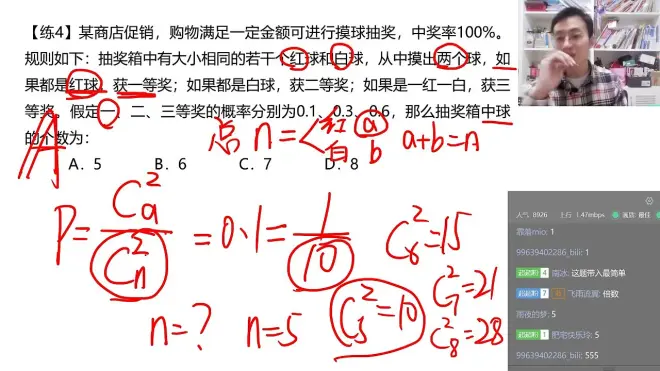 【练4】某商店促销，购物满足一定金额可进行摸球抽奖，中奖率100%。
规则如下：抽奖箱中有大小相同的若干个红球和白球，从中摸出两个球，如
果都是红球，获一等奖；如果都是白球，获二等奖；如果是一红一白，获三
等奖。假定一、二、三等奖的概率分别为0.1、0.3、0.6，那么抽奖箱中球
的个数为：
A. 5 B. 6 C. 7 D. 8
A
总 n = < 红 a
白 b
a+b=n
P = C_a^2 / C_n^2 = 0.1 = 1/10
C_6^2=15
C_7^2=21
C_8^2=28
n=? n=5 C_5^2=10
人气: 8926 上行: 1.47mbps 直播: 最佳
靠最mio: 1
99639402286_bili: 1
4 南冰: 这题带入最简单
7 飞雨流寓: 倍数
雨夜的梦: 5
1 把宅快乐玲: 5
99639402286_bili: 555